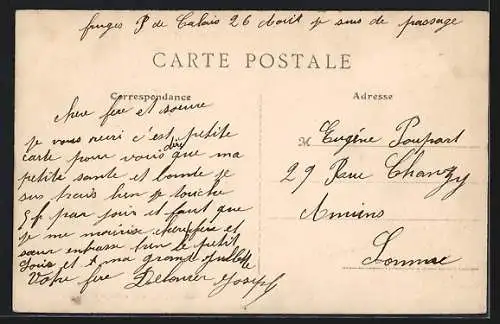 fruges P de Calais 26 Avril je suis de passage
CARTE POSTALE
Correspondance
Adresse
chere frere et soeure
je vous ecri c'est petite
carte pour vous dire que ma
petite sante et bonde je
sui trais bien je touche
5f par jour et faut que
je me nourise chere frere et
sœur enbrasse bien le petit
Louis et ma grande
Votre frere Joseph
M Eugéne Poupart
29 Rue Chanzy
Amiens
Somme